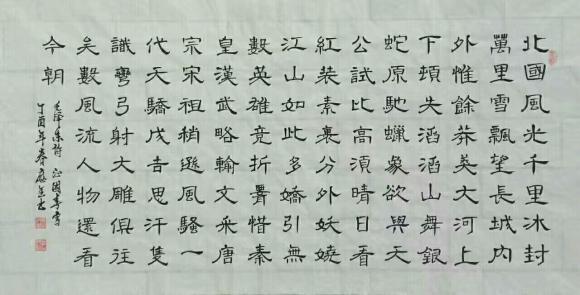 北國風光千里冰封
萬里雪飄望長城内
外惟餘莽莽大河上
下頓失滔滔山舞銀
蛇原馳蠟象欲與天
公試比高須晴日看
紅裝素裹分外妖嬈
江山如此多嬌引無
數英雄竞折腰惜秦
皇漢武略輸文采唐
宗宋祖稍遜風騷一
代天驕成吉思汗隻
識彎弓射大雕俱往
矣數風流人物還看
今朝
毛澤東詞沁園春雪
丁酉年春